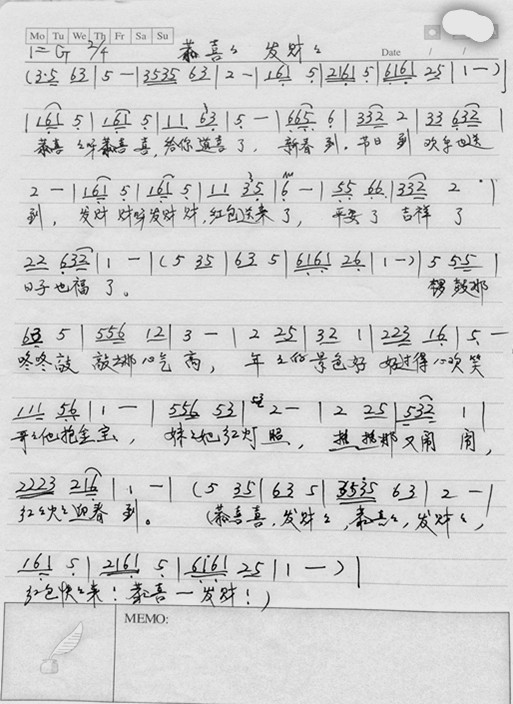 Mo Tu We Th Fr Sa Su
恭喜々 发财々
Date / /
1=G 2/4
(3·5 63 | 5 - | 3535 63 | 2 - | 161 5 | 2161 5 | 6161 25 | 1 - )
| 161 5 | 161 5 | 11 63 | 5 - | 665 6 | 332 2 | 33 632 |
恭喜々呀恭喜喜,给你道喜了,新春到,节日到欢乐也送
2 - | 161 5 | 161 5 | 11 35 | 6 - | 55 66 | 332 2 · |
到,发财财呀发财财,红包送来了,平安了吉祥了
22 632 | 1 - | (5 35 | 63 5 | 6161 26 | 1 -) | 5 55 |
日子也福了。 锣鼓那
63 5 | 556 12 | 3 - | 2 25 | 32 1 | 223 16 | 5 -
咚咚敲敲々那心气高,年々的景色好好过得心欢笑
111 56 | 1 - | 556 53 | 2 - | 2 25 | 532 1 |
哥々他抱金宝,妹々她红灯照,热热那又闹闹,
2223 216 | 1 - | (5 35 | 63 5 | 3535 63 | 2 - |
红红火火迎春到。(恭喜喜,发财々,恭喜々,发财々,
161 5 | 2161 5 | 6161 25 | 1 - ) |
红包快々来!恭喜一发财!)
MEMO: